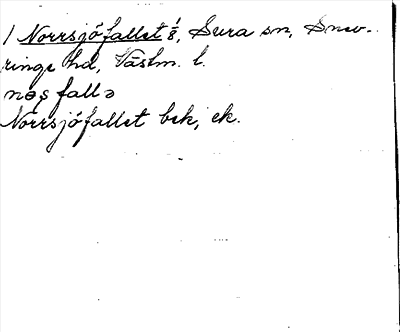 1 Norrsjöfallet 1/8, Sura sn, Snev-
ringe hd, Västm. l.
nos̩ fallə
Norrsjöfallet bek, ek.